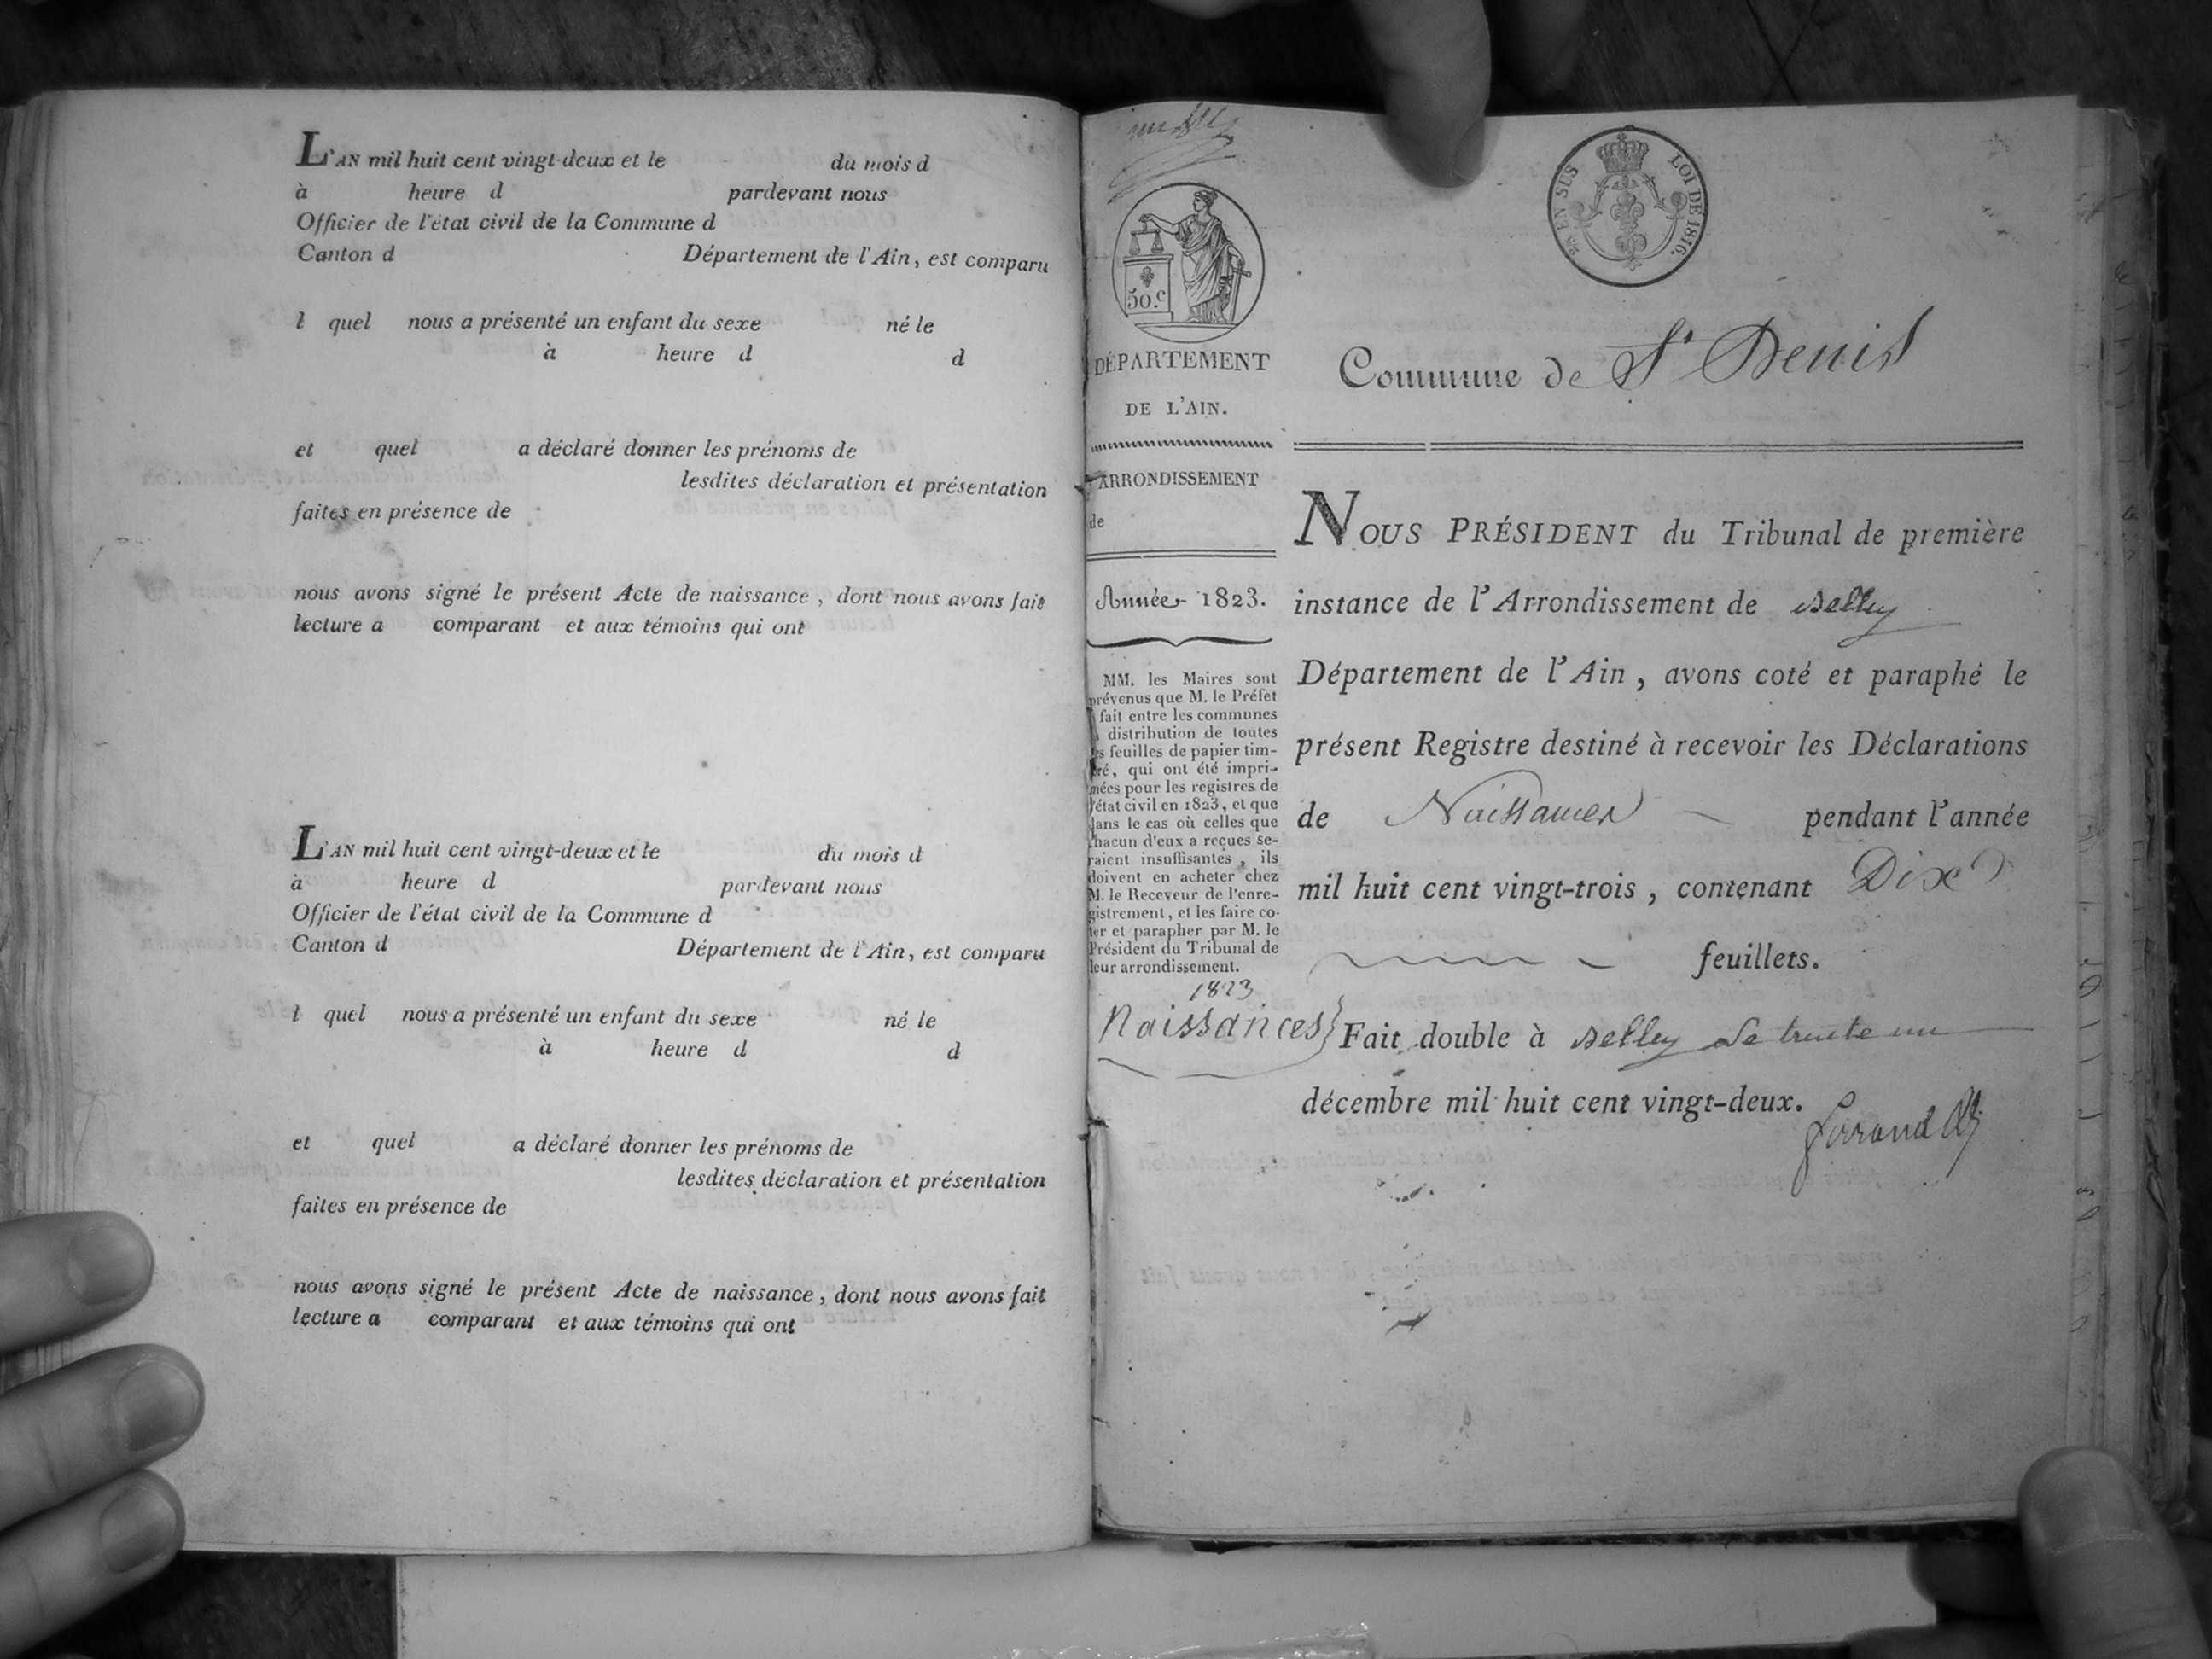 L'AN mil huit cent vingt-deux et le du mois d
à heure d pardevant nous
Officier de l'état civil de la Commune d
Canton d Département de l'Ain, est comparu
l quel nous a présenté un enfant du sexe né le
à heure d d
et quel a déclaré donner les prénoms de
lesdites déclaration et présentation
faites en présence de
nous avons signé le présent Acte de naissance, dont nous avons fait
lecture a comparant et aux témoins qui ont
L'AN mil huit cent vingt-deux et le du mois d
à heure d pardevant nous
Officier de l'état civil de la Commune d
Canton d Département de l'Ain, est comparu
l quel nous a présenté un enfant du sexe né le
à heure d d
et quel a déclaré donner les prénoms de
lesdites déclaration et présentation
faites en présence de
nous avons signé le présent Acte de naissance, dont nous avons fait
lecture a comparant et aux témoins qui ont
50.c
DÉPARTEMENT
DE L'AIN.
ARRONDISSEMENT
de
Année 1823.
MM. les Maires sont
prévenus que M. le Préfet
fait entre les communes
distribution de toutes
les feuilles de papier tim-
bré, qui ont été impri-
mées pour les registres de
l'état civil en 1823, et que
dans le cas où celles que
chacun d'eux a reçues se-
raient insuffisantes, ils
doivent en acheter chez
M. le Receveur de l'enre-
gistrement, et les faire co-
ter et parapher par M. le
Président du Tribunal de
leur arrondissement.
1823
Naissances
EN SUS LOI DE 1816.
Commune de St Denis
NOUS PRÉSIDENT du Tribunal de première
instance de l'Arrondissement de Belley
Département de l'Ain, avons coté et paraphé le
présent Registre destiné à recevoir les Déclarations
de Naissances pendant l'année
mil huit cent vingt-trois, contenant Dix
feuillets.
Fait double à Belley le trente un
décembre mil huit cent vingt-deux.